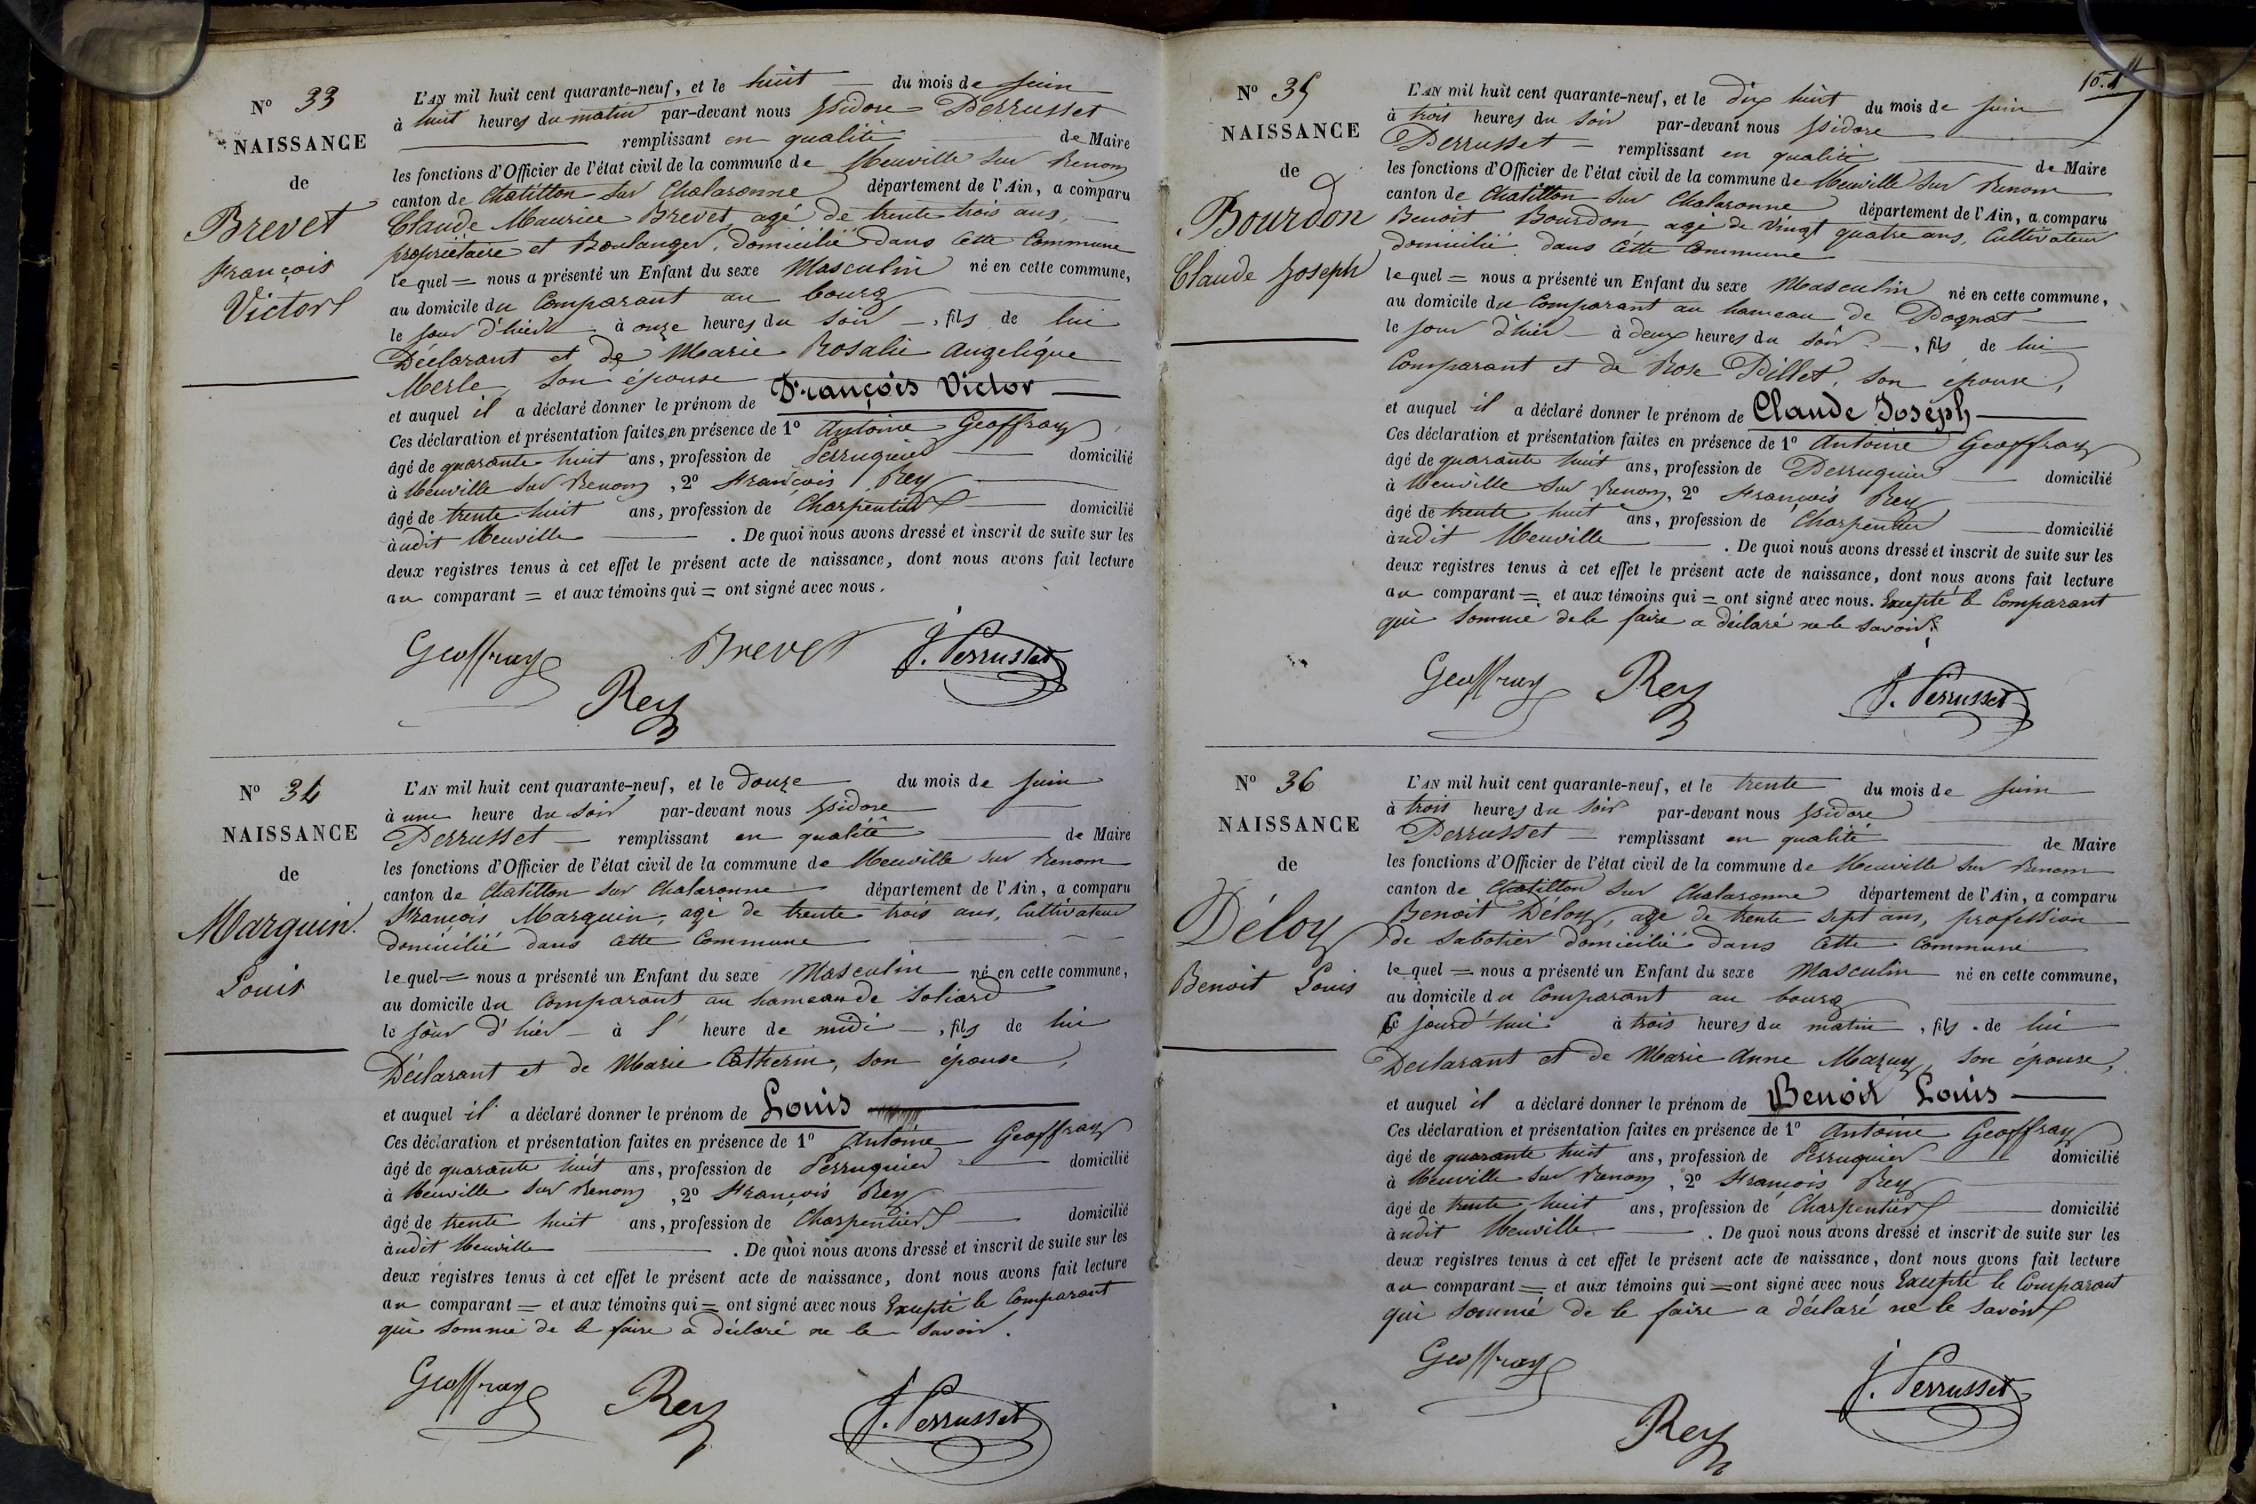 N° 33
NAISSANCE
de
Brevet
François
Victor
L'AN mil huit cent quarante-neuf, et le huit du mois de Juin
à huit heures du matin par-devant nous Isidore Perrusset
remplissant en qualité de Maire
les fonctions d'Officier de l'état civil de la commune de Neuville sur Renom
canton de Chatillon sur Chalaronne département de l'Ain, a comparu
Claude Maurice Brevet, agé de trente trois ans,
propriétaire et Boulanger, domicilié dans cette Commune
lequel = nous a présenté un Enfant du sexe Masculin né en cette commune,
au domicile du Comparant au bourg
le jour d'hier à onze heures du soir, fils de lui
Déclarant et de Marie Rosalie Angelique
Merle, son épouse
et auquel il a déclaré donner le prénom de François Victor
Ces déclaration et présentation faites en présence de 1° Antoine Geoffray
âgé de quarante huit ans, profession de Perruquier domicilié
à Neuville sur Renom, 2° François Rey
âgé de trente huit ans, profession de Charpentier domicilié
audit Neuville. De quoi nous avons dressé et inscrit de suite sur les
deux registres tenus à cet effet le présent acte de naissance, dont nous avons fait lecture
au comparant = et aux témoins qui = ont signé avec nous.
Geoffray Brevet J. Perrusset
Rey
N° 34
NAISSANCE
de
Marguin
Louis
L'AN mil huit cent quarante-neuf, et le douze du mois de Juin
à une heure du soir par-devant nous Isidore
Perrusset remplissant en qualité de Maire
les fonctions d'Officier de l'état civil de la commune de Neuville sur Renom
canton de Chatillon sur Chalaronne département de l'Ain, a comparu
François Marguin, agé de trente trois ans, Cultivateur
domicilié dans cette Commune
lequel = nous a présenté un Enfant du sexe Masculin né en cette commune,
au domicile du Comparant au hameau de Soliard
le jour d'hier à l'heure de midi, fils de lui
Déclarant et de Marie Catherin, son épouse,
et auquel il a déclaré donner le prénom de Louis
Ces déclaration et présentation faites en présence de 1° Antoine Geoffray
âgé de quarante huit ans, profession de Perruquier domicilié
à Neuville sur Renom, 2° François Rey
âgé de trente huit ans, profession de Charpentier domicilié
audit Neuville. De quoi nous avons dressé et inscrit de suite sur les
deux registres tenus à cet effet le présent acte de naissance, dont nous avons fait lecture
au comparant = et aux témoins qui = ont signé avec nous Excepté le Comparant
qui sommé de le faire a déclaré ne le savoir.
Geoffray Rey J. Perrusset
N° 35
NAISSANCE
de
Bourdon
Claude Joseph
L'AN mil huit cent quarante-neuf, et le dix huit du mois de Juin
à trois heures du soir par-devant nous Isidore
Perrusset remplissant en qualité de Maire
les fonctions d'Officier de l'état civil de la commune de Neuville sur Renom
canton de Chatillon sur Chalaronne département de l'Ain, a comparu
Benoit Bourdon, agé de vingt quatre ans, Cultivateur
domicilié dans cette Commune
lequel = nous a présenté un Enfant du sexe Masculin né en cette commune,
au domicile du Comparant au hameau de Pognat
le jour d'hier à deux heures du soir, fils de lui
Comparant et de Rose Pillet, son épouse,
et auquel il a déclaré donner le prénom de Claude Joseph
Ces déclaration et présentation faites en présence de 1° Antoine Geoffray
âgé de quarante huit ans, profession de Perruquier domicilié
à Neuville sur Renom, 2° François Rey
âgé de trente huit ans, profession de Charpentier domicilié
audit Neuville. De quoi nous avons dressé et inscrit de suite sur les
deux registres tenus à cet effet le présent acte de naissance, dont nous avons fait lecture
au comparant = et aux témoins qui = ont signé avec nous. Excepté le Comparant
qui sommé de le faire a déclaré ne le savoir.
Geoffray Rey J. Perrusset
N° 36
NAISSANCE
de
Déloy
Benoit Louis
L'AN mil huit cent quarante-neuf, et le trente du mois de Juin
à trois heures du soir par-devant nous Isidore
Perrusset remplissant en qualité de Maire
les fonctions d'Officier de l'état civil de la commune de Neuville sur Renom
canton de Chatillon sur Chalaronne département de l'Ain, a comparu
Benoit Déloy, age de trente sept ans, profession
de sabotier domicilié dans cette commune
lequel = nous a présenté un Enfant du sexe Masculin né en cette commune,
au domicile du Comparant au bourg
Ce jourd'hui à trois heures du matin, fils de lui
Declarant et de Marie Anne Mazuy, son épouse,
et auquel il a déclaré donner le prénom de Benoit Louis
Ces déclaration et présentation faites en présence de 1° Antoine Geoffray
âgé de quarante huit ans, profession de Perruquier domicilié
à Neuville sur Renom, 2° François Rey
âgé de trente huit ans, profession de Charpentier domicilié
audit Neuville. De quoi nous avons dressé et inscrit de suite sur les
deux registres tenus à cet effet le présent acte de naissance, dont nous avons fait lecture
au comparant = et aux témoins qui = ont signé avec nous Excepté le Comparant
qui sommé de le faire a déclaré ne le savoir
Geoffray J. Perrusset
Rey